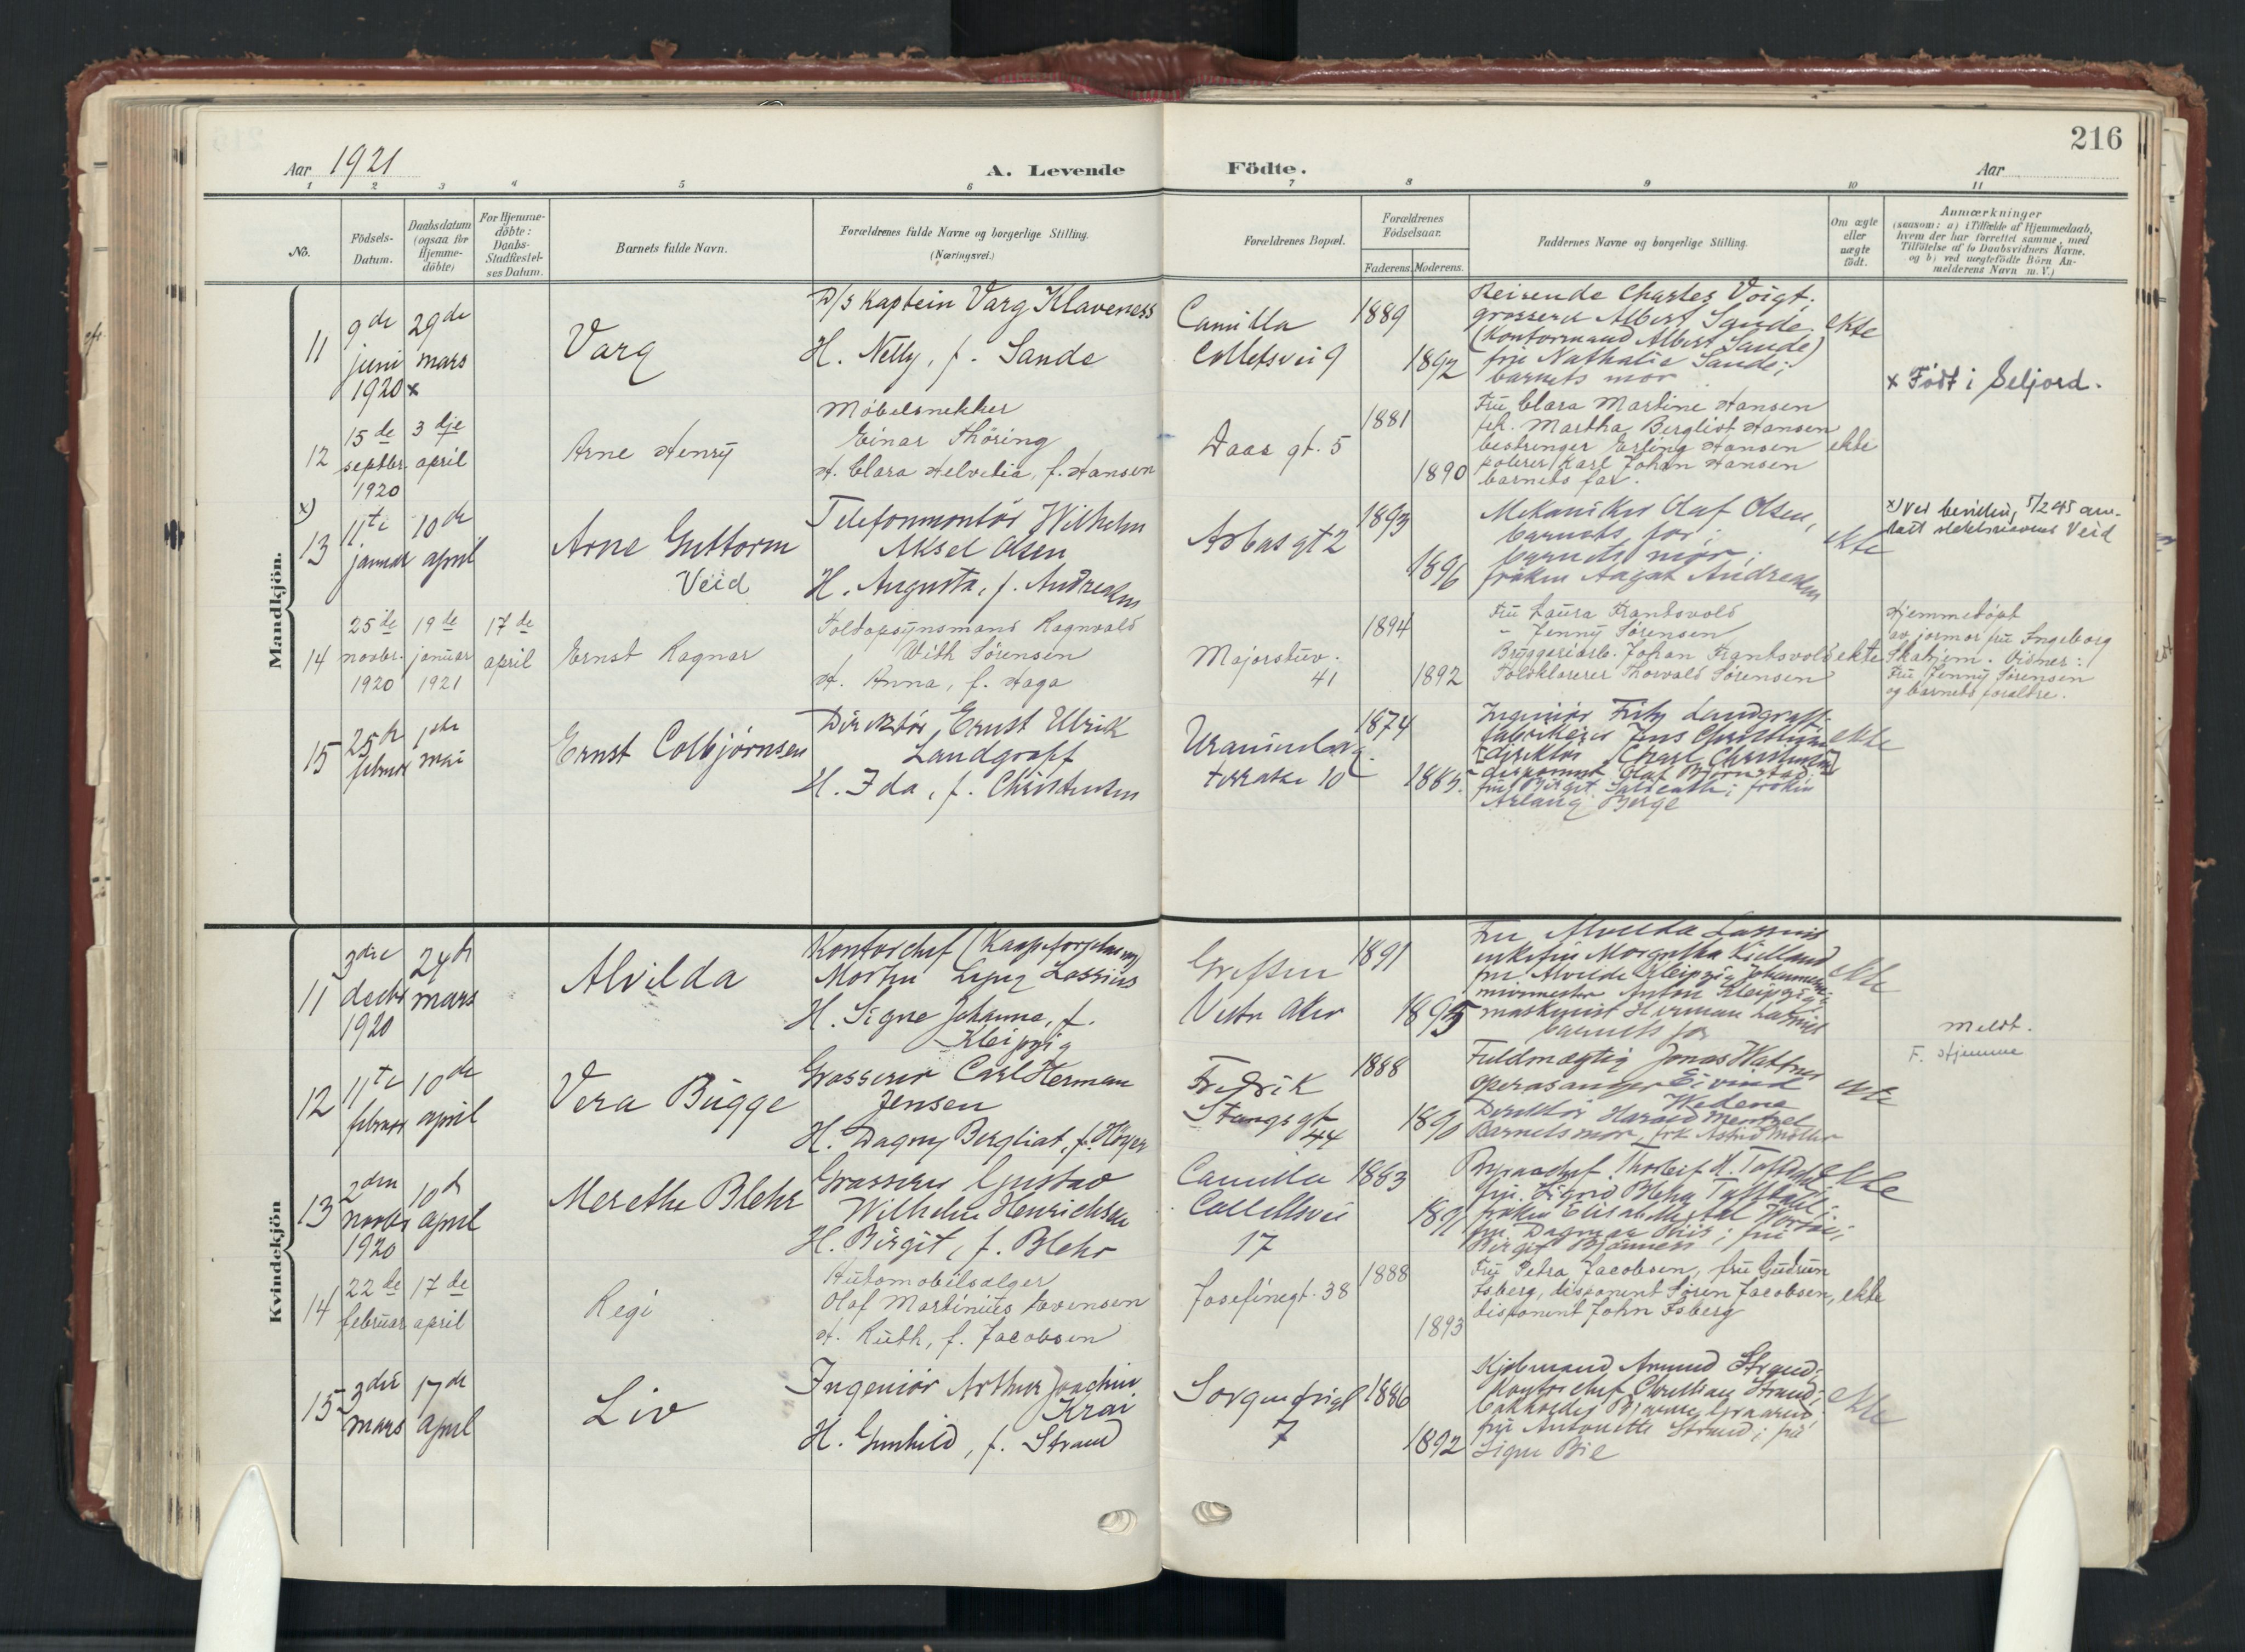 216
Aar 1921
A. Levende Födte.
Aar
1 2 3 4 5 6 7 8 9 10 11
No.
Födsels-Datum.
Daabsdatum (ogsaa for Hjemme-döbte)
For Hjemme-döbte: Daabs-Stadfæstel-ses Datum.
Barnets fulde Navn.
Forældrenes fulde Navne og borgerlige Stilling. (Næringsvei.)
Forældrenes Bopæl.
Forældrenes Födselsaar.
Faderens. Moderens.
Faddernes Navne og borgerlige Stilling.
Om ægte eller uægte födt.
Anmærkninger
(saasom: a) i Tilfælde af Hjemmedaab,
hvem der har forrettet samme, med
Tilföielse af to Daabsvidners Navne,
og b) ved uægtefödte Börn An-
melderens Navn m. V.)
Mandkjön.
11
9de juni 1920 x
29de mars
Varg
D/S Kaptein Varg Klaveness
H. Nelly, f. Sande
Camilla
Collets vei 9
1889
1892
Reisende Charles Voigt.
grosserer Albert Sande.
(Kontormand Albert Sande)
fru Nathalie Sande;
barnets mor
ekte
x Født i Seljord.
12
15de septbr. 1920
3dje april
Arne Henry
Møbelsnekker
Einar Thöring
H. Clara Helvilia, f. Hansen
Daas gt. 5
1881
1890
Fru Clara Martine Hansen
frk. Martha Bergliot Hansen
Erling Hansen
polerer Karl Johan Hansen
barnets far.
ekte
x)
13
11te januar
10de april
Arne Guttorm
Veid
Telefonmontör Wilhelm
Aksel Olsen
H. Augusta, f. Andreasen
Asbøs gt 2
1893
1896
Mekaniker Olaf Olsen,
barnets far;
barnets mor;
frøken Aagot Andreasen
ekte
x) Ved bevilling 5/2 45 an-
tatt slektsnavnet Veid
14
25de novbr. 1920
19de januar 1921
17de april
Ernst Ragnar
Toldopsynsmand Ragnvald
With Sörensen
H. Anna, f. Haga
Majorstuv. 41
1894
1892
Fru Laura Frantsvold
" Jenny Sørensen
Bryggeriarb. Johan Frantsvold
Toldklarerer Thorvald Sørensen
ekte
Hjemmedøpt
av jormor fru Ingeborg
Skahjem. Vidner:
Fru Jenny Sørensen
og barnets foreldre.
15
25de februar
1ste mai
Ernst Colbjörnsen
Direktör Ernst Ulrik
Landgraff
H. Ida, f. Christensen
Uranienborg
terrasse 10
1874
1885.
Ingeniør Fritz Landgraff.
fabrikeier Jens Christensen
[direktör Charl. Christensen]
disponent Olaf Bjørnstad;
fru Birgit ; frøken
Aslaug Berge
ekte
Kvindekjön
11
3die decbr 1920
24de mars
Alvilda
Kontorchef
Morten Lassius
H. Signe Johanne, f.
Kleipzig
Grefsen
Vestre Aker
1891
1895
Fru Alvilda Lassius
enkefru Margretha Kielland
fru Alvilde Kleipzig Johannesen
murmester Anton Kleipzig;
maskinist Herman Lassius
barnets far
ekte
Meldt.
F. Hjemme
12
11te februar
10de april
Vera Bugge
Grosserer Carl Herman
Jensen
H. Dagny Bergliot, f. Höyer
Fredrik
Stangs gt 44
1888
1890
Fuldmægtig Jonas Wattne
operasanger Eivind
Wedene
Direktör Harald Mentzel
Barnets mor, frk Astrid Møller
ekte
13
2den novbr 1920
10de april
Merethe Blehr
Grosserer Gustav
Wilhelm Henrichsen
H. Birgit, f. Blehr
Camilla
Collettsvei
17
1883
1891
Thorleif H.
fru Sigrid Blehr
frøken Elisabeth
fru Dagmar Riis; fru
Birgit
ekte
14
22de februar
17de april
Regi
Automobilselger
Olaf Martinius Evensen
H. Ruth, f. Jacobsen
Josefinegt. 38
1888
1893
Fru Petra Jacobsen, fru Gudrun
Isberg, disponent Søren Jacobsen,
disponent John Isberg
ekte
15
3die mars
17de april
Liv
Ingeniör Arthur Joachim
Krai
H. Gunhild, f. Strand
Sorgenfrigt
7
1886
1892
Kjöbmand Amund Strand;
Kontorchef Christian Strand;
bokholder Bjarne
fru Antonette Strand; fru
Signe Bie
ekte